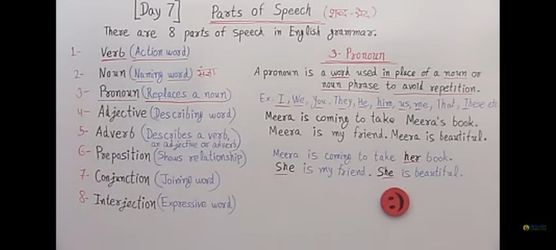 [Day 7] Parts of Speech (शब्द-भेद)
There are 8 parts of speech in English grammar.
1- Verb (Action word)
2- Noun (Naming word) संज्ञा
3- Pronoun (Replaces a noun)
4- Adjective (Describing word)
5- Adverb (Describes a verb,
an adjective or adverb)
6- Preposition (Shows relationship)
7- Conjunction (Joining word)
8- Interjection (Expressive word)
3- Pronoun
A pronoun is a word used in place of a noun or
noun phrase to avoid repetition.
Ex. I, We, You, They, He, him, us, me, That, These etc
Meera is coming to take Meera's book.
Meera is my friend. Meera is beautiful.
Meera is coming to take her book.
She is my friend. She is beautiful.